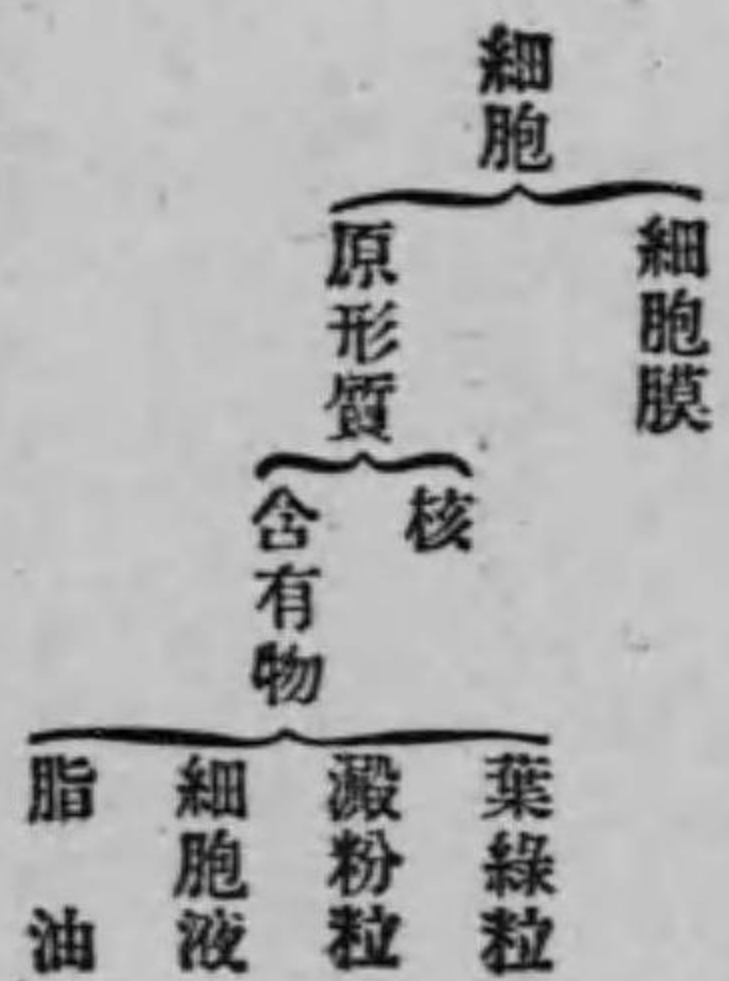 細胞
細胞膜
原形質
核
含有物
葉綠粒
澱粉粒
細胞液
脂油